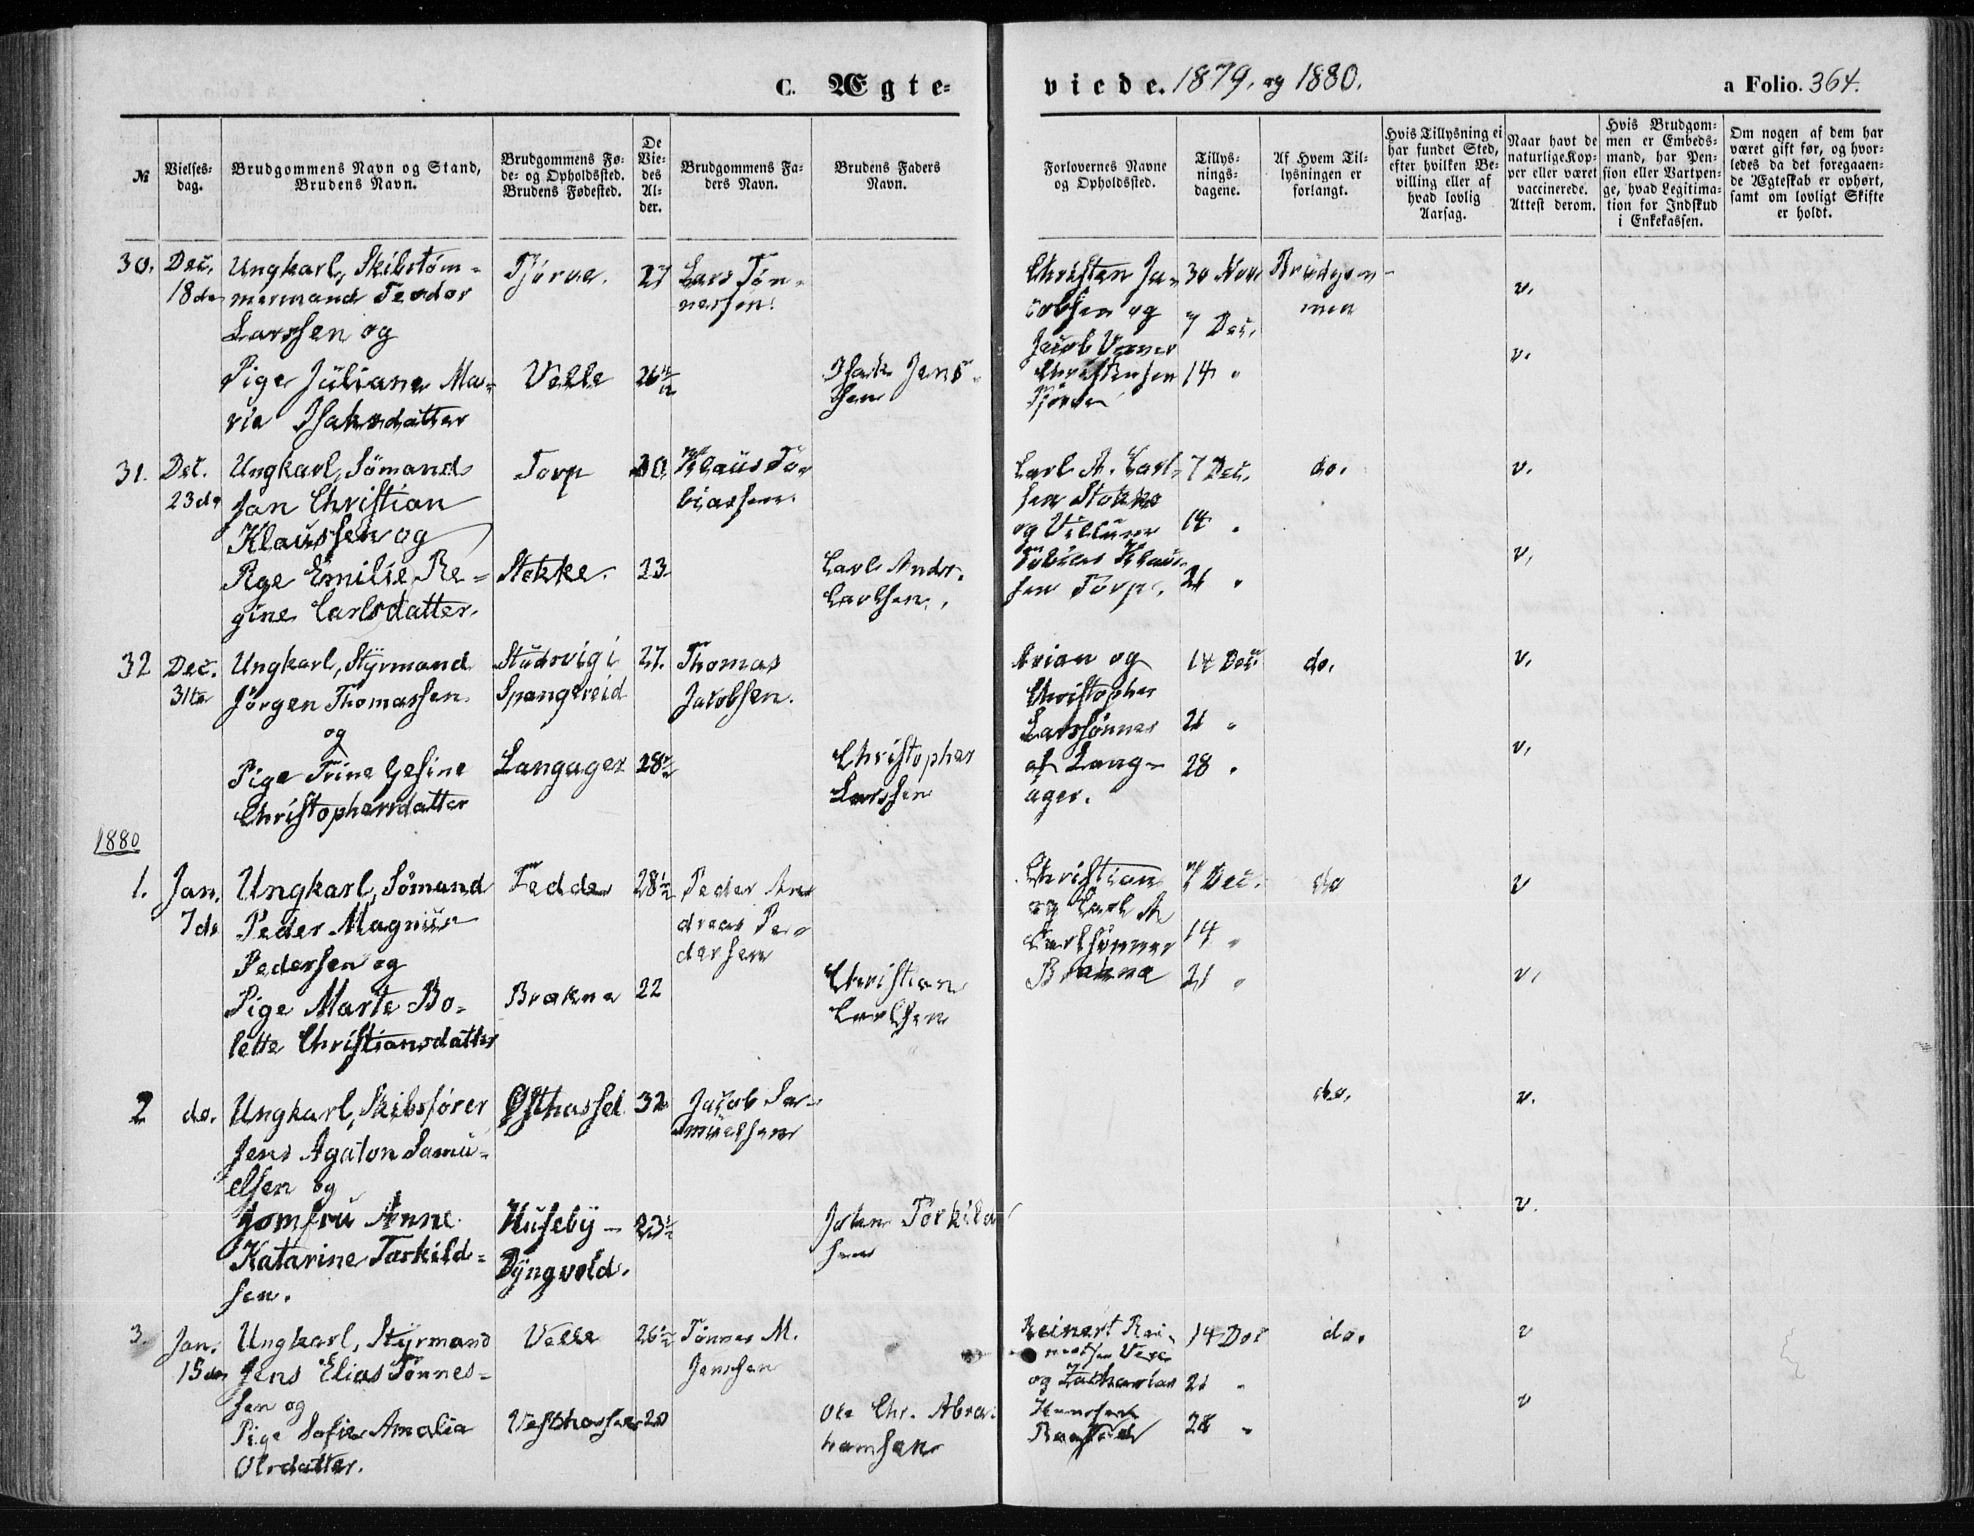 C. Ægte-
viede. 1879. og 1880.
a Folio. 364.
№
Vielses-
dag.
Brudgommens Navn og Stand,
Brudens Navn.
Brudgommens Fø-
de- og Opholdssted.
Brudens Fødested.
De
Vie-
des
Al-
der.
Brudgommens Fa-
ders Navn.
Brudens Faders
Navn.
Forlovernes Navne
og Opholdssted.
Tillys-
nings-
dagene.
Af Hvem Til-
lysningen er
forlangt.
Hvis Tillysning ei
har fundet Sted,
efter hvilken Be-
villing eller af
hvad lovlig
Aarsag.
Naar havt de
naturlige Kop-
per eller været
vaccinerede.
Attest derom.
Hvis Brudgom-
men er Embeds-
mand, har Pen-
sion eller Vartpen-
ge, hvad Legitima-
tion for Indskud
i Enkekassen.
Om nogen af dem har
været gift før, og hvor-
ledes da det foregaaen-
de Ægteskab er ophørt,
samt om lovligt Skifte
er holdt.
30.
Dec.
18de
Ungkarl, Skibstøm-
mermand Teodor
Larssen og
Pige Juliane Ma-
rie Isaksdatter
Tjørve.
Velle
27
26
Lars Tøn-
nessen.
Isak Jens-
sen
Christen Ja-
cobsen og
Jacob
Christensen
Tjørve
30 Nov
7 Dec.
14 "
Brudgom-
men
v.
v.
31.
Dec.
23de
Ungkarl, Sömand
Jan Christian
Klaussen og
Pige Emilie Re-
gine Carlsdatter.
Torp
Stokke.
23
Klaus To-
biassen.
Carl Andr.
Carlsen.
Carl A. Carl-
sen Stokke
og
Tobias Klaus-
sen Torp.
7 Dec.
14 "
21 "
do.
v.
v.
32
Dec.
31te
Ungkarl, Styrmand
Jörgen Thomassen
og
Pige Trine Gesine
Christophersdatter
Studsvig i
Spangereid
Langager
27.
28
Thomas
Jacobsen.
Christopher
Larssen
Arian og
Christopher
Larssønner
af Lang-
ager.
14 Dec.
21 "
28 "
do.
v.
v.
1880
1.
Jan.
7de
Ungkarl, Sömand
Peder Magnus
Pedersen og
Pige Marte Bo-
lette Christiansdatter
Tedde
Brakne
28½
22
Peder An-
dreas Pe-
dersen
Christian
Carlsen
Christian
og Carl A
Carlsønner
Brakne
7 Dec.
14 "
21 "
do
v
v.
2
do.
Ungkarl, Skibsfører
Jens Agaton Samu-
elsen og
Jomfru Anne
Katarine Torkild-
sen.
Østhassel
Huseby-
Dyngvold.
32
23½
Jacob Sa-
muelsen
John Torkild-
sen
do.
v.
v.
3.
Jan.
15de
Ungkarl, Styrmand
Jens Elias Tønnes-
sen og
Pige Sofie Amalia
Olesdatter.
Velle
Vesthassel
26½
20
Tønnes M.
Jenssen
Ole Chr. Abra-
hamsen
Reinert Rei-
nertsen
og Zacharias
Hanssen
14 Dec
21 "
28 "
do.
v
v